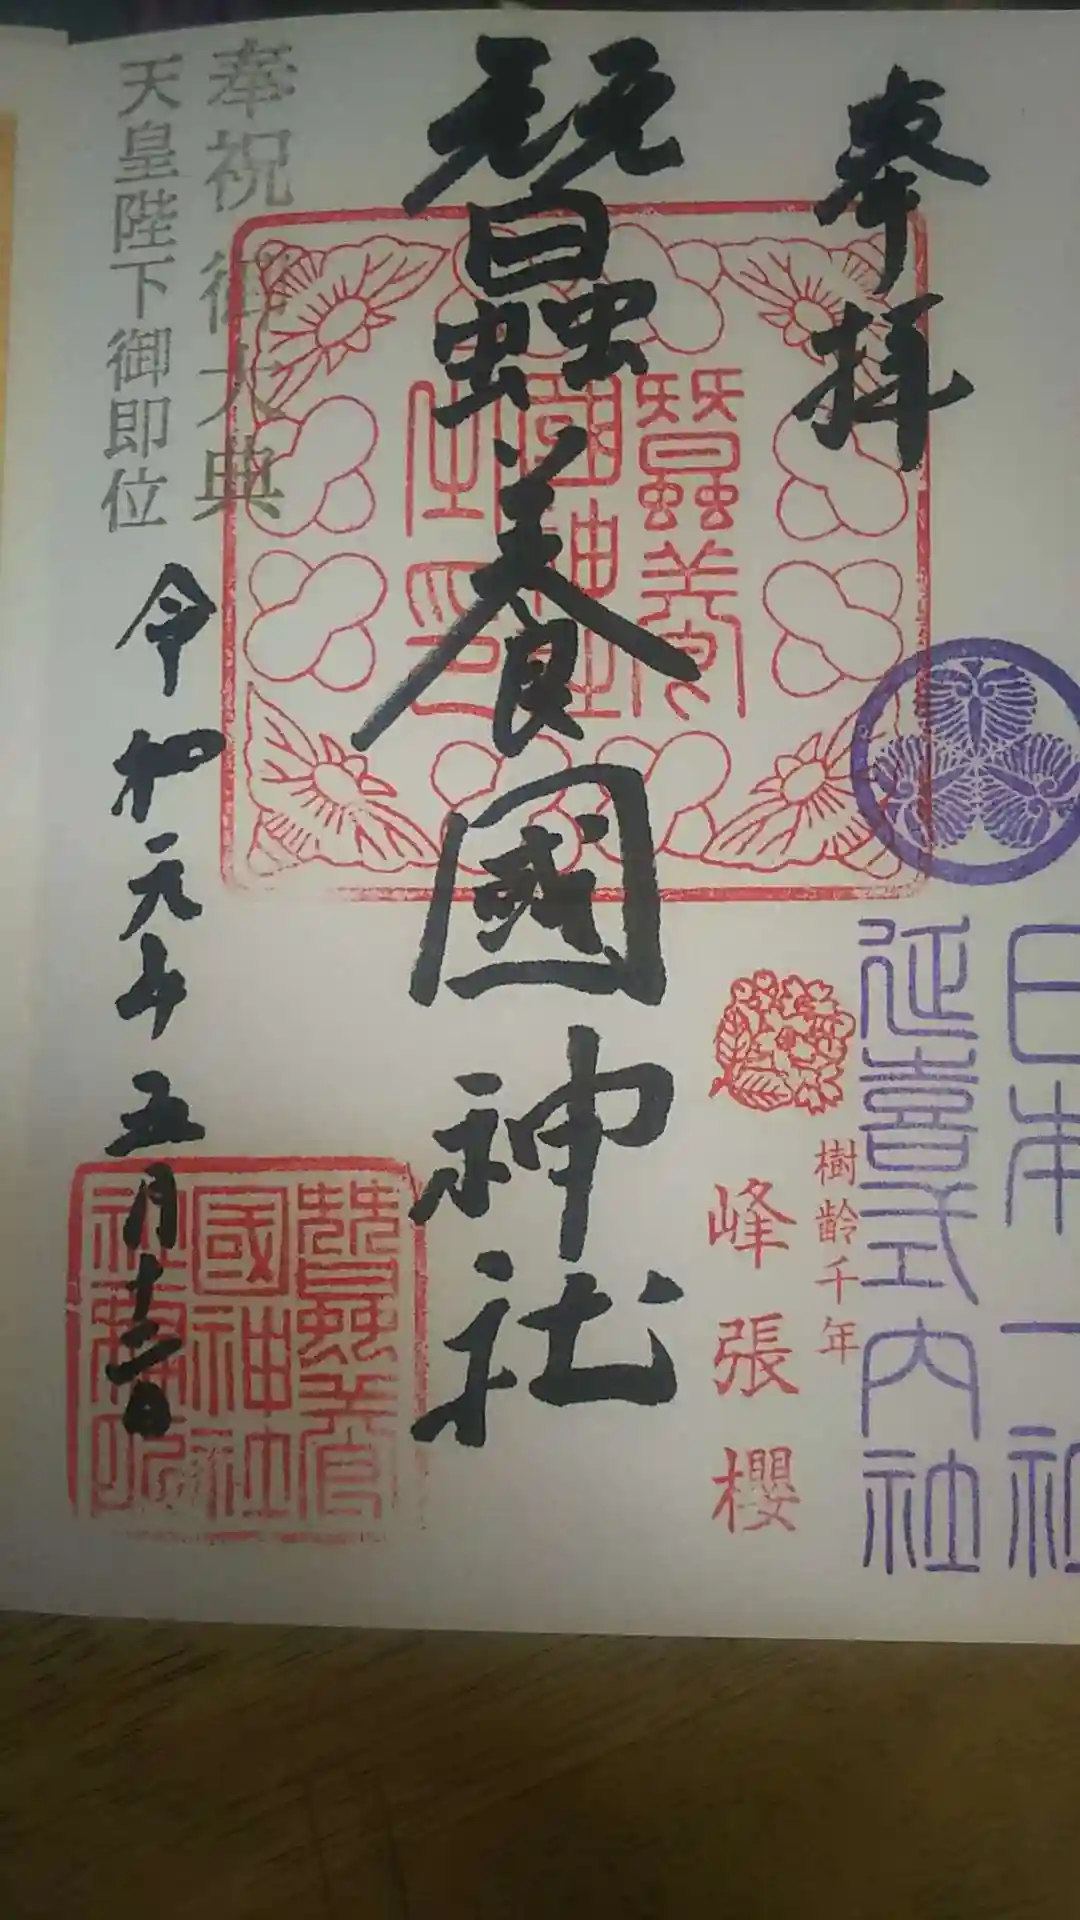 奉拝
日本一社
延喜式内社
樹齢千年
峰張櫻
蠶養國神社
蠶養
國神社
之印
奉祝 御大典
天皇陛下御即位
令和元年五月十二日
蠶養
國神社